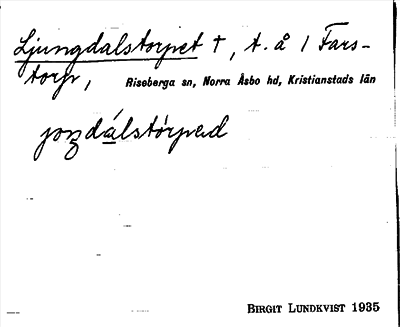 Ljungdalstorpet †, t. å 1 Fars-
torp, Riseberga sn, Norra Åsbo hd, Kristianstads län
joŋdálstòrpəd
BIRGIT LUNDKVIST 1935